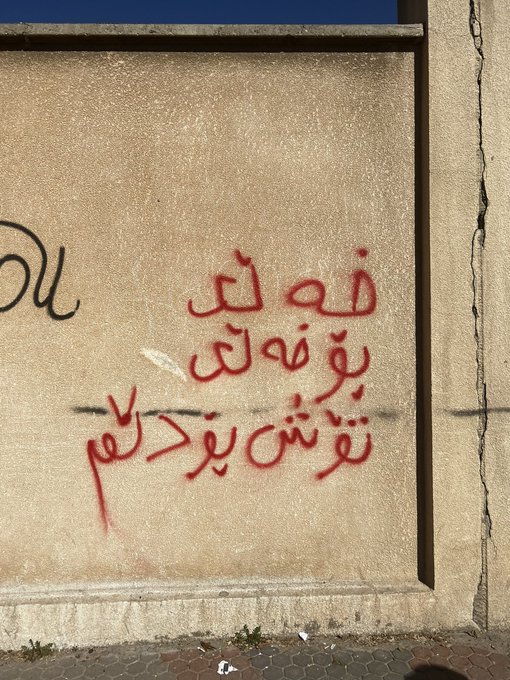 خەڵک
بۆ خەڵک
تۆش بۆ